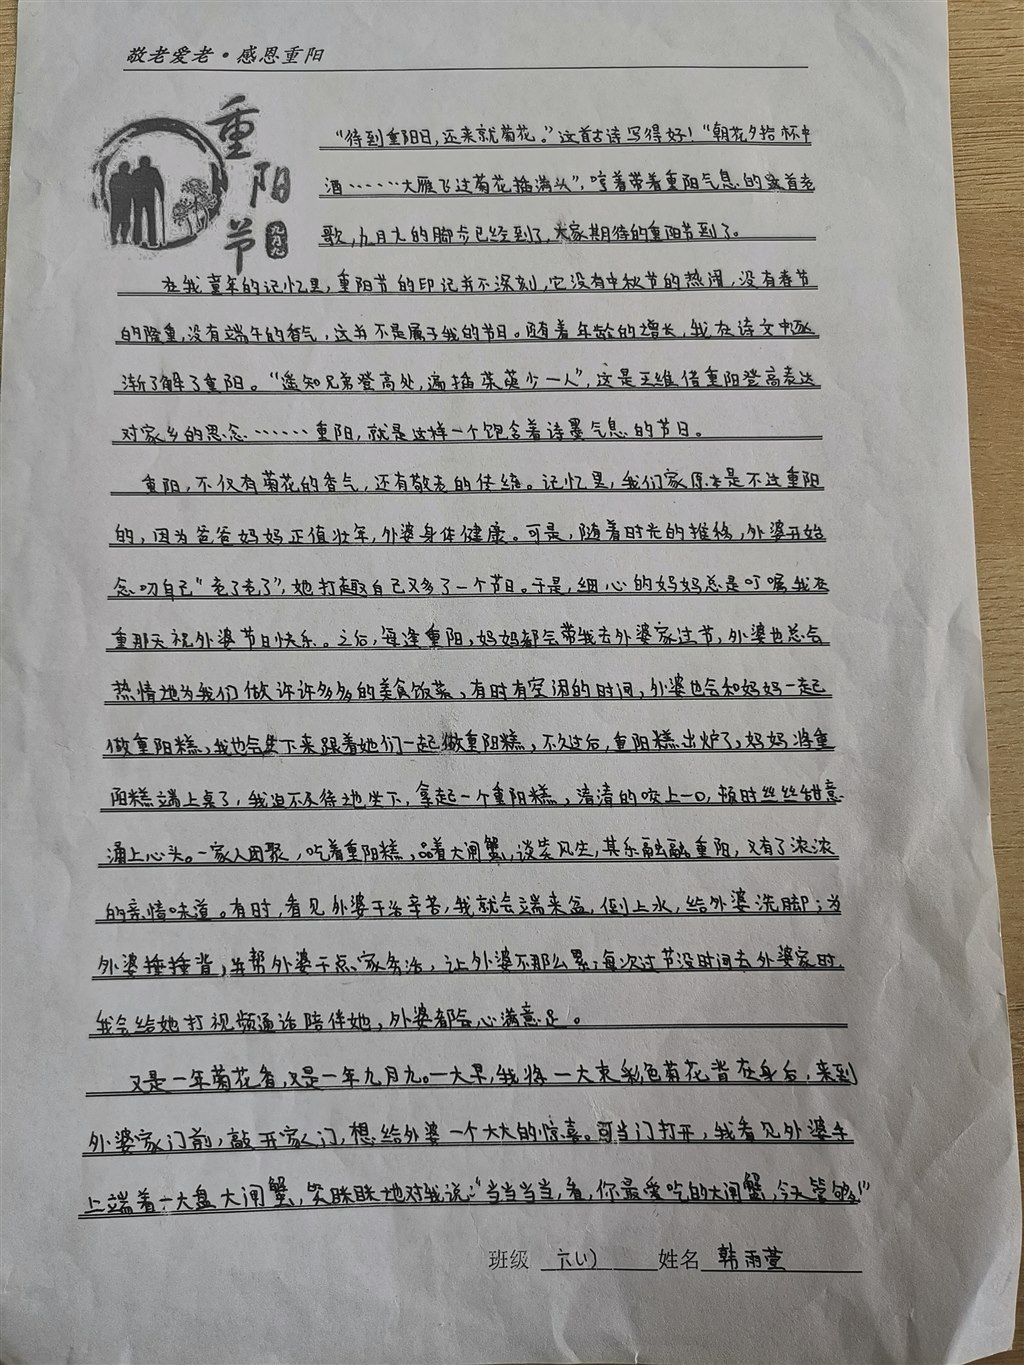 敬老爱老·感恩重阳
重阳节
九月九
“待到重阳日,还来就菊花。”这首古诗写得好!“朝花夕拾杯中
酒……大雁飞过菊花插满头”,哼着带着重阳气息的这首老
歌,九月九的脚步已经到了,大家期待的重阳节到了。
在我童年的记忆里,重阳节的印记并不深刻,它没有中秋节的热闹,没有春节
的隆重,没有端午的香气,这并不是属于我的节日。随着年龄的增长,我在诗文中逐
渐了解了重阳。“遥知兄弟登高处,遍插茱萸少一人”,这是王维借重阳登高表达
对家乡的思念……重阳,就是这样一个饱含着诗墨气息的节日。
重阳,不仅有菊花的香气,还有敬老的传统。记忆里,我们家原本是不过重阳
的,因为爸爸妈妈正值壮年,外婆身体健康。可是,随着时光的推移,外婆开始
念叨自己“老了老了”,她打趣自己又多了一个节日。于是,细心的妈妈总是叮嘱我在
重那天祝外婆节日快乐。之后,每逢重阳,妈妈都会带我去外婆家过节,外婆也总会
热情地为我们做许许多多的美食饭菜,有时有空闲的时间,外婆也会和妈妈一起
做重阳糕,我也会坐下来跟着她们一起做重阳糕,不久过后,重阳糕出炉了,妈妈将重
阳糕端上桌了,我迫不及待地坐下,拿起一个重阳糕,清清的咬上一口,顿时丝丝甜意
涌上心头。一家人团聚,吃着重阳糕,品着大闸蟹,谈笑风生,其乐融融重阳,又有了浓浓
的亲情味道。有时,看见外婆干活辛苦,我就会端来盆,倒上水,给外婆洗脚;为
外婆捶捶背,并帮外婆干点家务活,让外婆不那么累;每次过节没时间去外婆家时,
我会给她打视频通话陪伴她,外婆都会心满意足。
又是一年菊花香,又是一年九月九。一大早,我将一大束彩色菊花背在身后,来到
外婆家门前,敲开家门,想给外婆一个大大的惊喜。可当门打开,我看见外婆手
上端着一大盘大闸蟹,笑眯眯地对我说:“当当当当,看,你最爱吃的大闸蟹,今天管够!”
班级 六(1) 姓名 韩雨萱